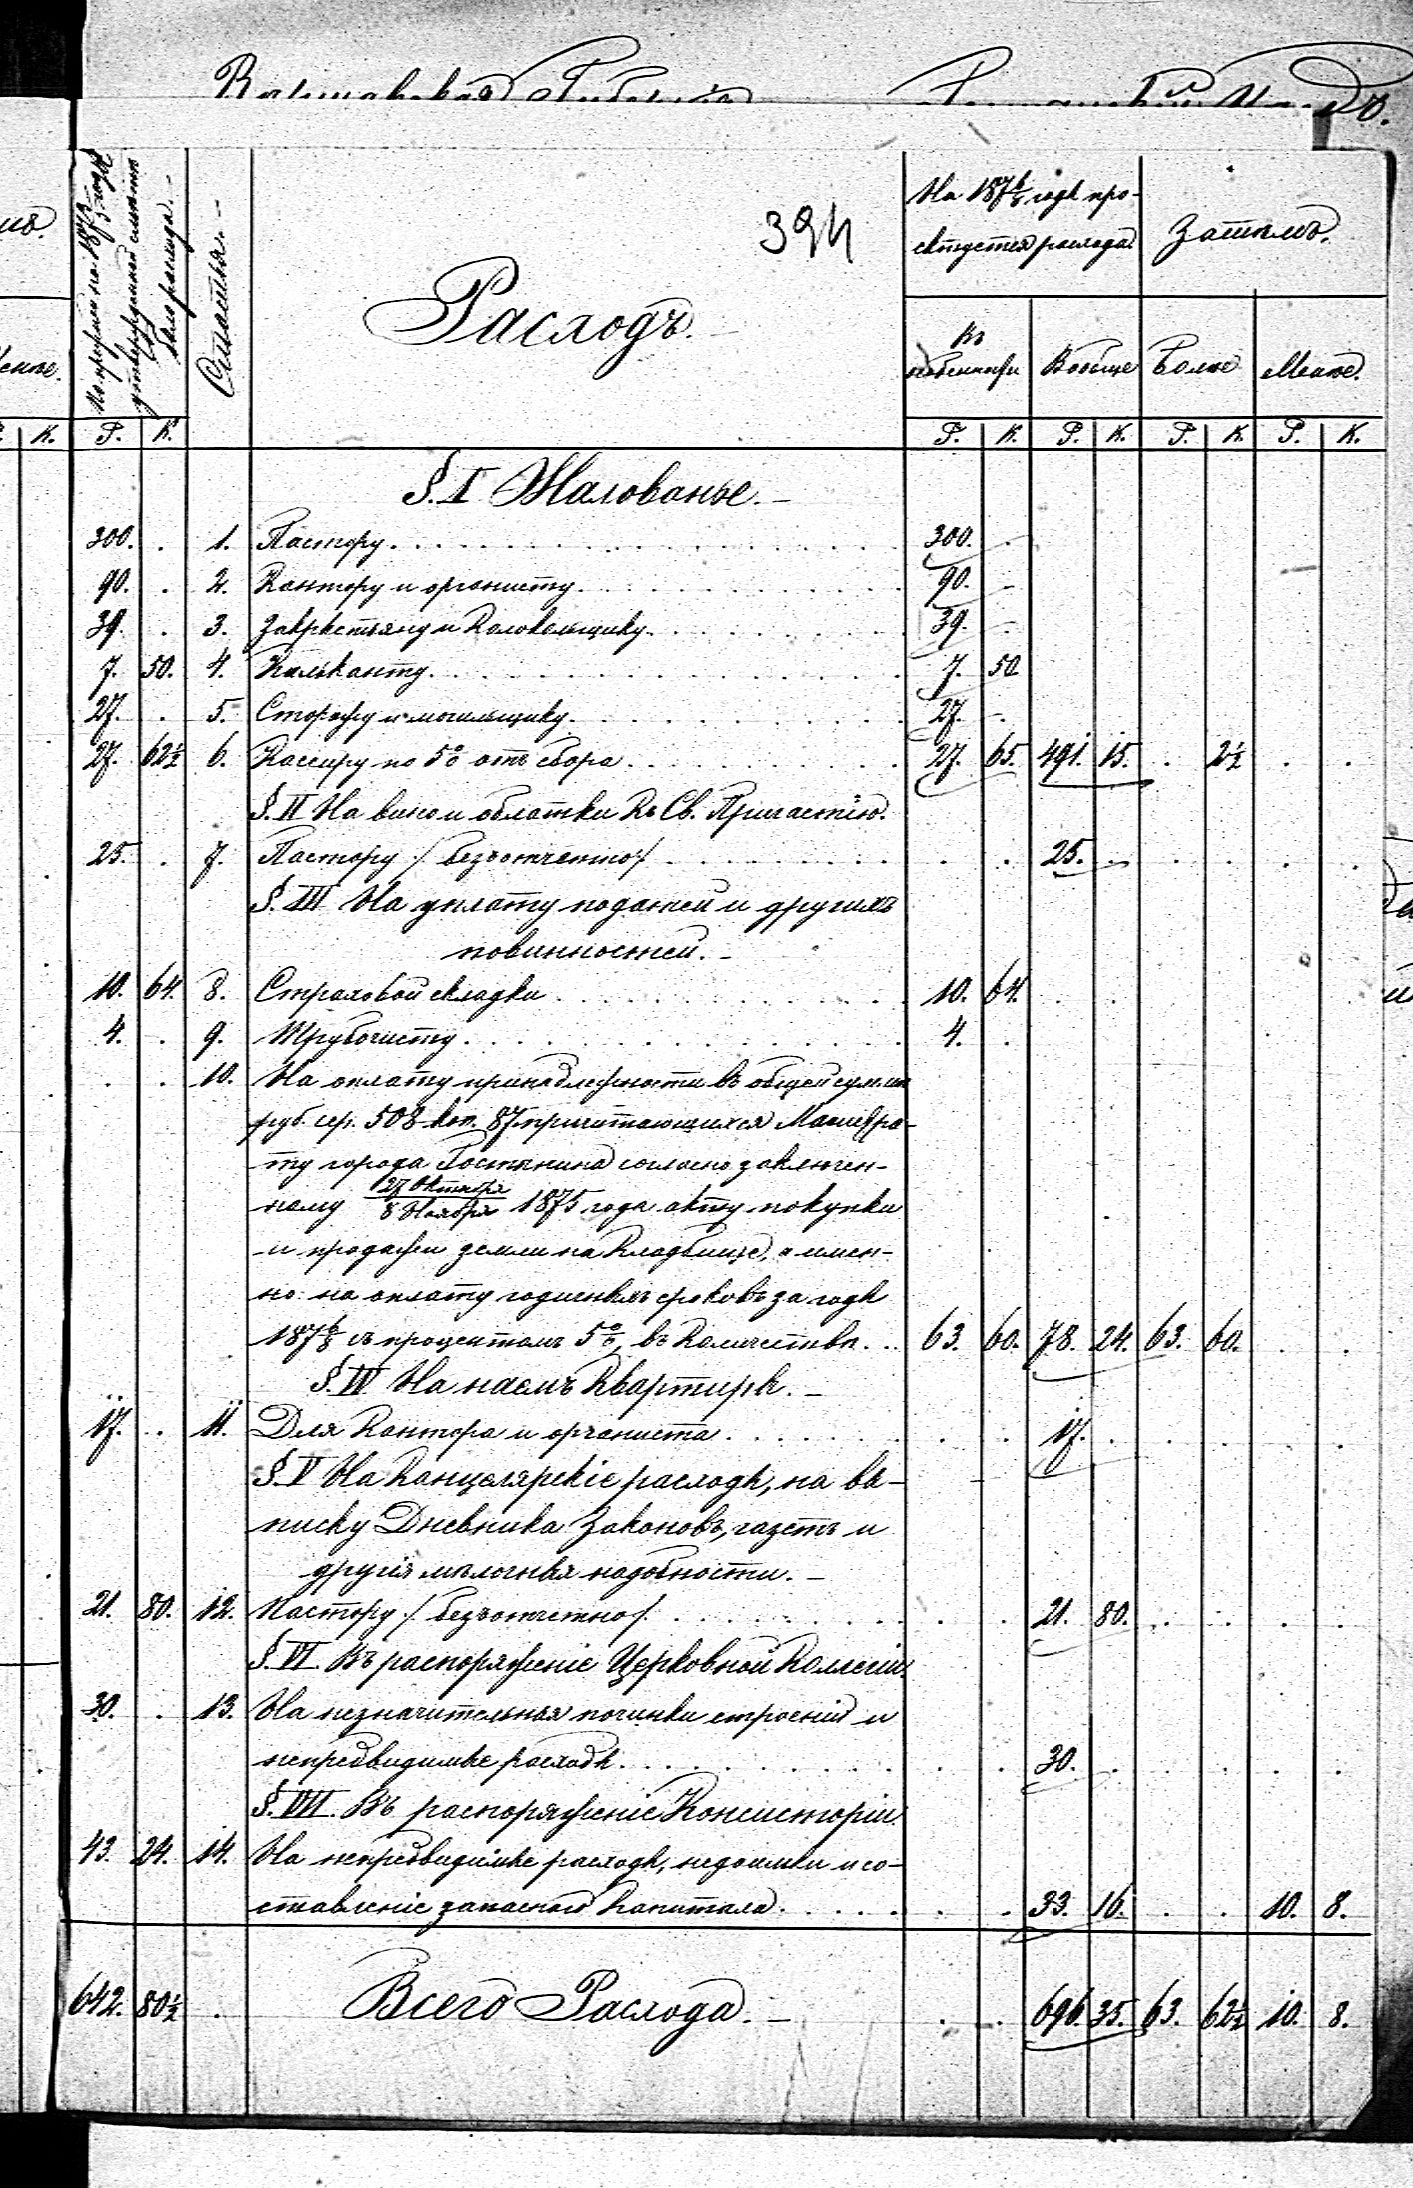 Варшавская Губернія
394
По прежней на 187 3/5 годы
утвержденной смѣтѣ
было расхода.
Статья.
Расходъ.
На 187 6/8 годы про-
ектуется расхода
Затѣмъ.
Въ особенности
Вообще
Болѣе
Менѣе.
К. Р. К. Р. К. Р. К. Р. К. Р. К.
§. I Жалованье.
300. . 1. Пастору . . . 300. .
90. . 2. Кантору и органисту . . . 90. -
39. . 3. Закристіяну и колокольщику . . . 39. -
7. 50. 4. Кальканту . . . 7. 50
27. . 5. Сторожу и могильщику . . . 27. -
27. 62½ 6. Кассиру по 5% отъ сбора . . . 27. 65. 491. 15. . 2½ . .
§. II На вино и облатки къ Св. Причастію.
25. . 7. Пастору /безъотчетно/ . . . 25. . . . . .
§. III На уплату податей и другихъ
повинностей.
10. 64. 8. Страховой складки . . . 10. 64.
4. . 9. Трубочисту . . . 4. .
. . 10. На оплату принадлежности въ общей суммѣ
руб. сер. 508 коп. 87 причитающихся Магистра-
ту города Гостынина согласно заключен-
ному 27 Октября / 8 Ноября 1875 года акту покупки
и продажи земли на кладбище, а имен-
но: на оплату годичныхъ сроковъ за годы
187 6/8 съ процентомъ 5% въ количествѣ . . 63. 60. 78. 24. 63. 60. . .
§. IV На наемъ квартиры.
17. . 11. Для Кантора и органиста . . . 17. . . . . .
§. V На Канцелярскіе расходы, на вы-
писку Дневника Законовъ, газетъ и
другія мѣлочныя надобности.
21. 80. 12. Пастору /безъотчетно/ . . . 21. 80. . . . .
§. VI. Въ распоряженіе Церковной Коллегіи.
30. . 13. На незначительныя починки строеній и
непредвидимые расходы . . . 30. . . . . .
§. VII. Въ распоряженіе Консисторіи.
43. 24. 14. На непредвидимые расходы, недоимки и со-
ставленіе запаснаго капитала . . . 33. 16. . . 10. 8.
642. 80½ . Всего Расхода. . . 696. 35. 63. 62½ 10. 8.